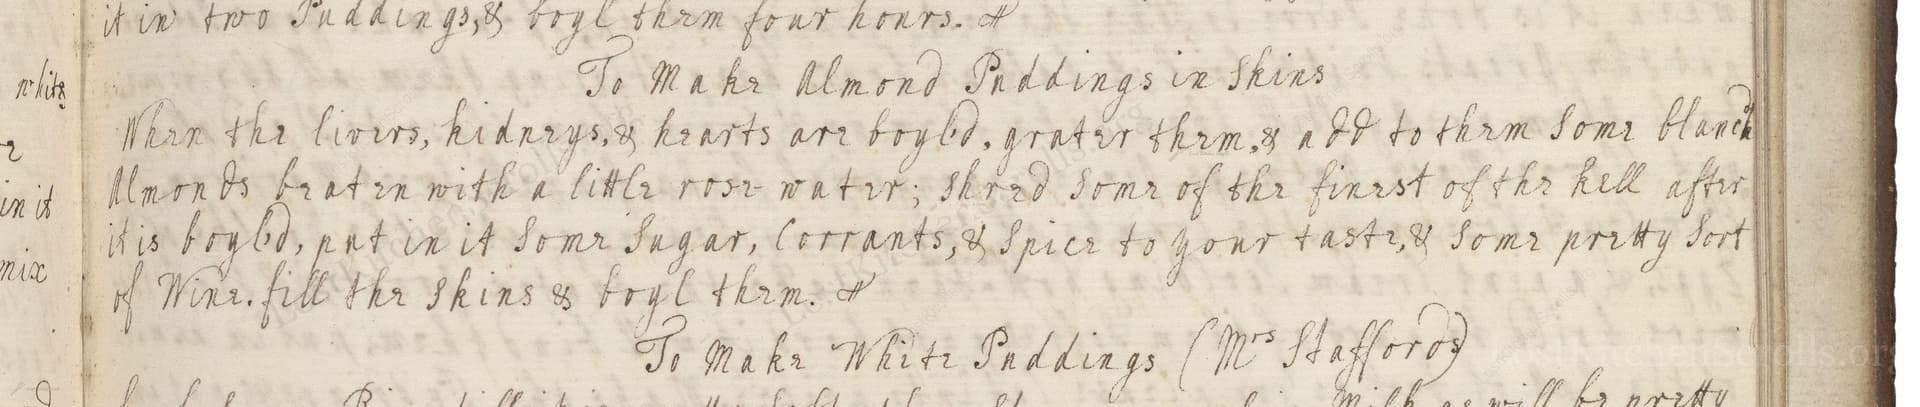 it in two Puddings, & boyl them four hours.
To Make Almond Puddings in Skins
whits
When the livers, kidneys, & hearts are boyl'd, grater them, & add to them Some blanch'd
Almonds beaten with a little rose-water; Shred Some of the finest of the kell after
in it
it is boyl'd, put in it Some Sugar, Corrants, & Spice to your taste, & Some pretty Sort
mix
of Wine. fill the Skins & boyl them.
To Make White Puddings (Mrs Stafford)
Milk as will be pretty